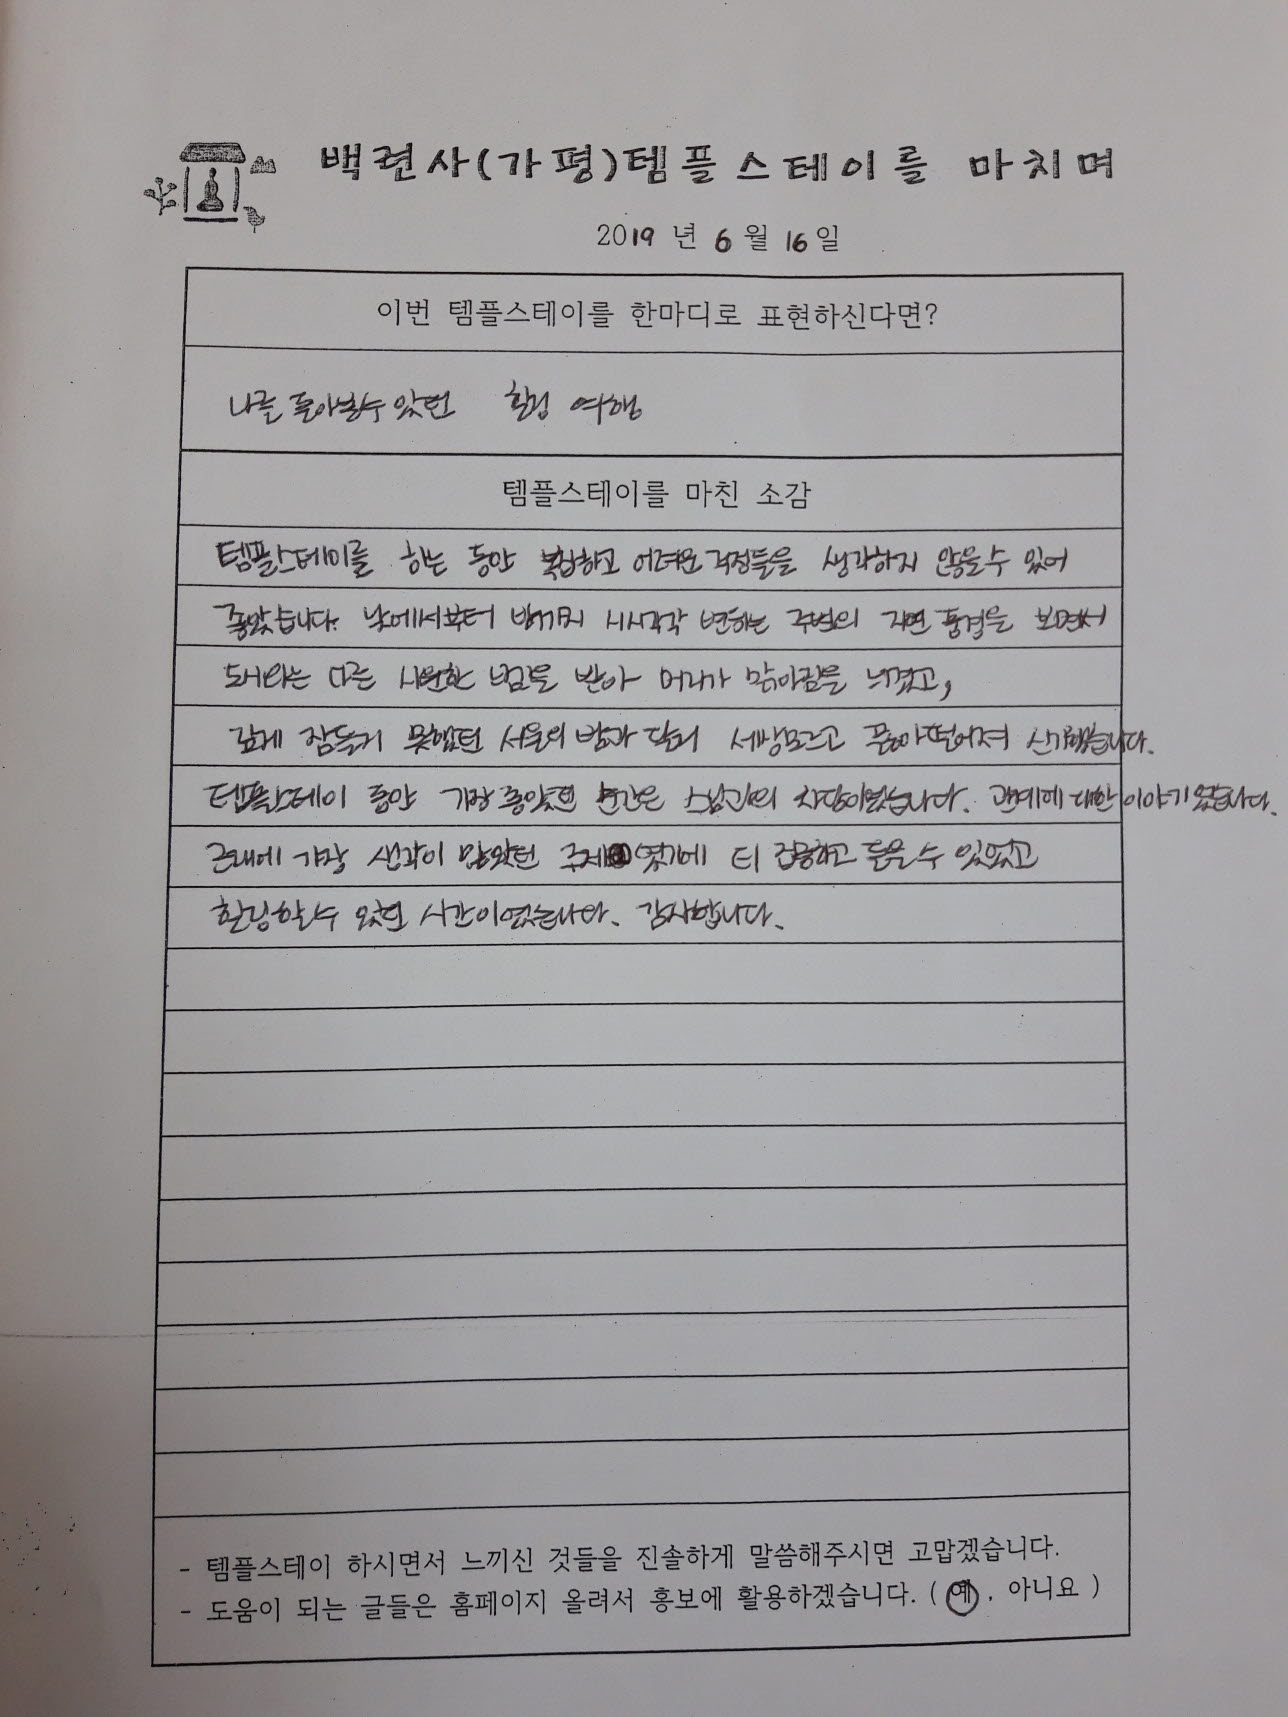 백련사(가평)템플스테이를 마치며
2019 년 6 월 16 일
이번 템플스테이를 한마디로 표현하신다면?
나를 돌아볼수 있었던 힐링 여행
템플스테이를 마친 소감
템플스테이를 하는 동안 복잡하고 어려운 걱정들을 생각하지 않을 수 있어
좋았습니다. 낮에서부터 밤까지 시시각각 변하는 주변의 자연 풍경을 보면서
도시와는 다른 시원한 밤을 받아 머리가 맑아짐을 느꼈고,
깊게 잠들지 못했던 서울의 밤과 달리 세상모르고 곯아떨어져 신기했습니다.
템플스테이 동안 가장 좋았던 순간은 스님과의 차담이였습니다. 관계에 대한 이야기였습니다.
근래에 가장 생각이 많았던 주제였기에 더 집중하고 들을 수 있었고
힐링할수 있었던 시간이였습니다. 감사합니다.
- 템플스테이 하시면서 느끼신 것들을 진솔하게 말씀해주시면 고맙겠습니다.
- 도움이 되는 글들은 홈페이지 올려서 홍보에 활용하겠습니다. ( 예 , 아니요 )